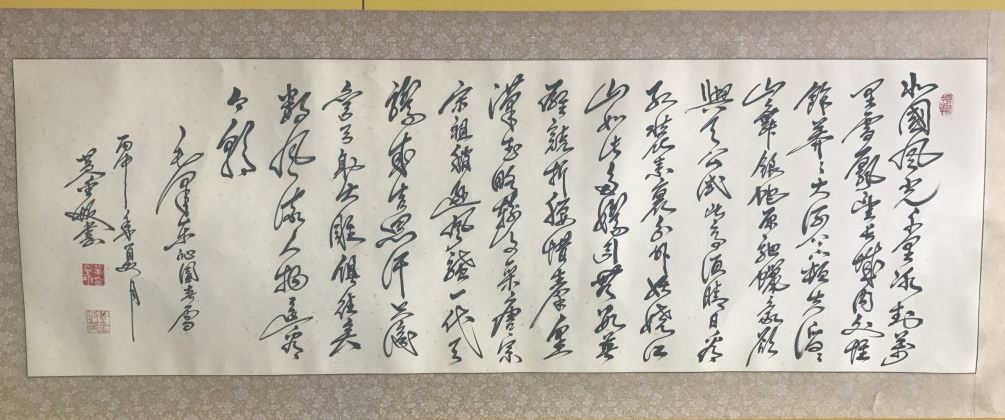 北國風光千里冰封萬
里雪飄望長城內外惟
餘莽莽大河上下頓失滔滔
山舞銀蛇原馳蠟象欲
與天公試比高須晴日看
紅裝素裹分外妖嬈江
山如此多嬌引無數英
雄競折腰惜秦皇
漢武略輸文采唐宗
宋祖稍遜風騷一代天
驕成吉思汗只識
彎弓射大雕俱往矣
數風流人物還看
今朝
毛澤東沁園春雪
丙申年夏月